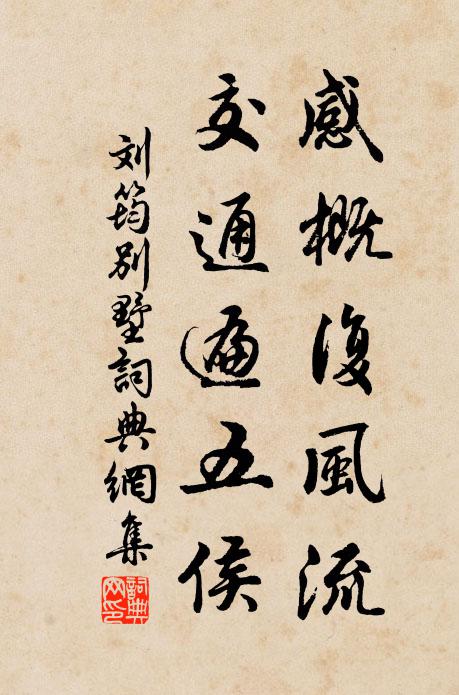 感概復風流
交通遍五侯
刘筠别墅詞典網集
詞典網印